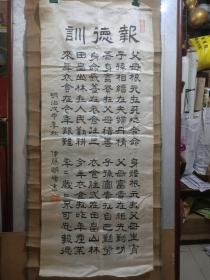 報德訓
父母根元在天地命令身體根元在父母生育
子孫相續在夫婦丹精父母富貴在祖先勤功
吾身富貴在父母積善子孫富貴在自己勤勞
身命長養在衣食住三衣食住三在田畠山林
田畠山林在人民勤耕今年衣食在昨年產業
來年衣食在今年艱難年々歲々不可忘報德
明治